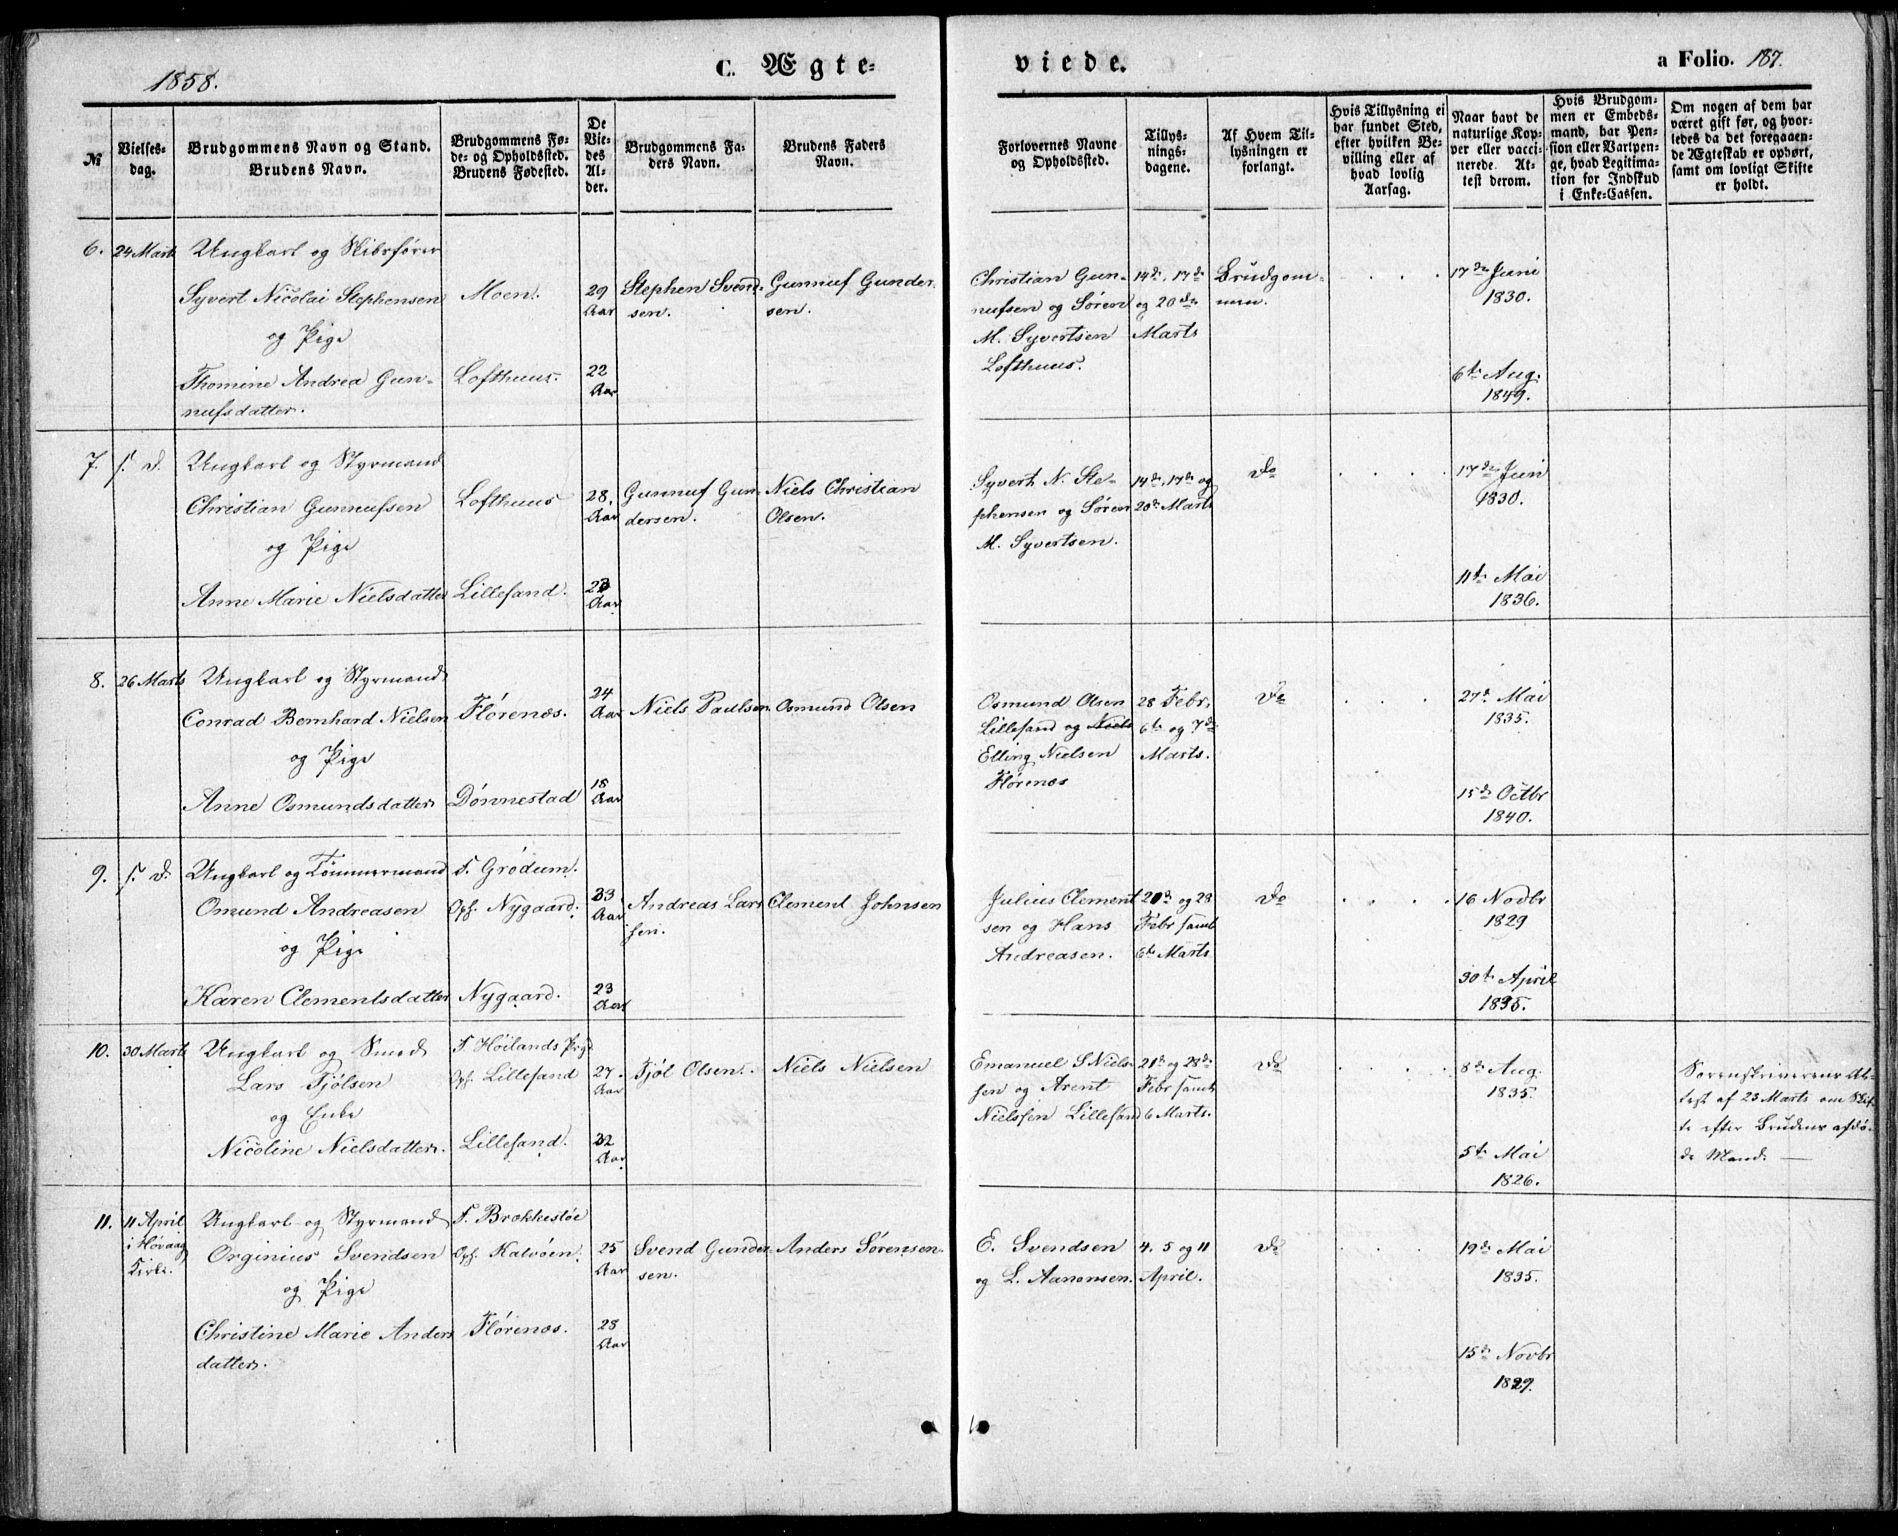 1858.
C. Ægte-
viede.
a Folio. 187.
No
Vielses-
dag.
Brudgommens Navn og Stand.
Brudens Navn.
Brudgommens Fø-
de- og Opholdssted.
Brudens Fødested.
De
Vie-
des
Al-
der.
Brudgommens Fa-
ders Navn.
Brudens Faders
Navn.
Forlovernes Navne
og Opholdssted.
Tillys-
nings-
dagene.
Af Hvem Til-
lysningen er
forlangt.
Hvis Tillysning ei
har fundet Sted,
efter hvilken Be-
villing eller af
hvad lovlig
Aarsag.
Naar havt de
naturlige Kop-
per eller vacci-
nerede. At-
test derom.
Hvis Brudgom-
men er Embeds-
mand, har Pen-
sion eller Vartpen-
ge, hvad Legitima-
tion for Indskud
i Enke-Cassen.
Om nogen af dem har
været gift før, og hvor-
ledes da det foregaaen-
de Ægteskab er ophørt,
samt om lovligt Skifte
er holdt.
6. 24 Marts
Ungkarl og Skibsfører
Syvert Nicolai Stephensen
og Pige
Thomine Andrea Gun-
nufsdatter.
Moen.
Lofthuus.
29
Aar
22
Aar
Stephen Svend-
sen.
Gunnuf Gunder-
sen.
Christian Gun-
nufsen og Søren
M. Syvertsen
Lofthuus.
14de, 17de
og 20de
Marts
Brudgom-
men.
17de Juni
1830.
6te Aug.
1849.
7. s. d.
Ungkarl og Styrmand
Christian Gunnufsen
og Pige
Anne Marie Nielsdatter
Lofthuus
Lillesand.
28.
Aar
23
Aar
Gunnuf Gun-
dersen.
Niels Christian
Olsen.
Syvert N. Ste-
phensen og Søren
M. Syvertsen.
14de, 17de og
20de Marts
Do
17de Juni
1830.
11te Mai
1836.
8. 26 Marts
Ungkarl og Styrmand
Conrad Bernhard Nielsen
og Pige
Anne Osmundsdatter
Flørenæs.
Dønnestad
24
Aar
18
Aar
Niels Paulsen
Osmund Olsen
Osmund Olsen
Lillesand og Niels
Elling Nielsen
Flørenæs
28 Febr,
6te og 7de
Marts.
Do
27de Mai
1835.
15de Octbr
1840.
9. s. d.
Ungkarl og Tømmermand
Omund Andreasen
og Pige
Karen Clementsdatter
F. Grødum.
Oph. Nygaard.
Nygaard.
33
Aar
23
Aar
Andreas Lar-
sen.
Clement Johnsen
Julius Clement-
sen og Hans
Andreasen.
Febr samt
6te Marts.
Do
16 Novbr
1829
30te April
1835.
10. 30 Marts
Ungkarl og Smed
Lars Tjølsen
og Enke
Nicoline Nielsdatter.
F. Høilands Prgd
Oph. Lillesand
Lillesand.
27.
Aar
32
Aar
Tjøl Olsen.
Niels Nielsen
Emanuel S Niels-
sen og Arent
Nielssen Lillesand
21de og 28de
Febr samt
6 Marts.
Do
8de Aug.
1835.
5te Mai
1826.
Sorenskriverens At-
test af 23 Marts om Skif-
te efter Brudens afdø-
de Mand.
11. 11 April
i Høvaag
Kirke.
Ungkarl og Styrmand
Orginius Svendsen
og Pige
Christine Marie Anders
datter.
F. Brækkestøe
Oph. Kalvøen.
Flørenæs.
25
Aar
28
Aar
Svend Gunder-
sen.
Anders Sørensen
E. Svendsen
og L. Aanonsen.
4. 5 og 11
April.
Do
19de Mai
1835.
15de Novbr
1829.